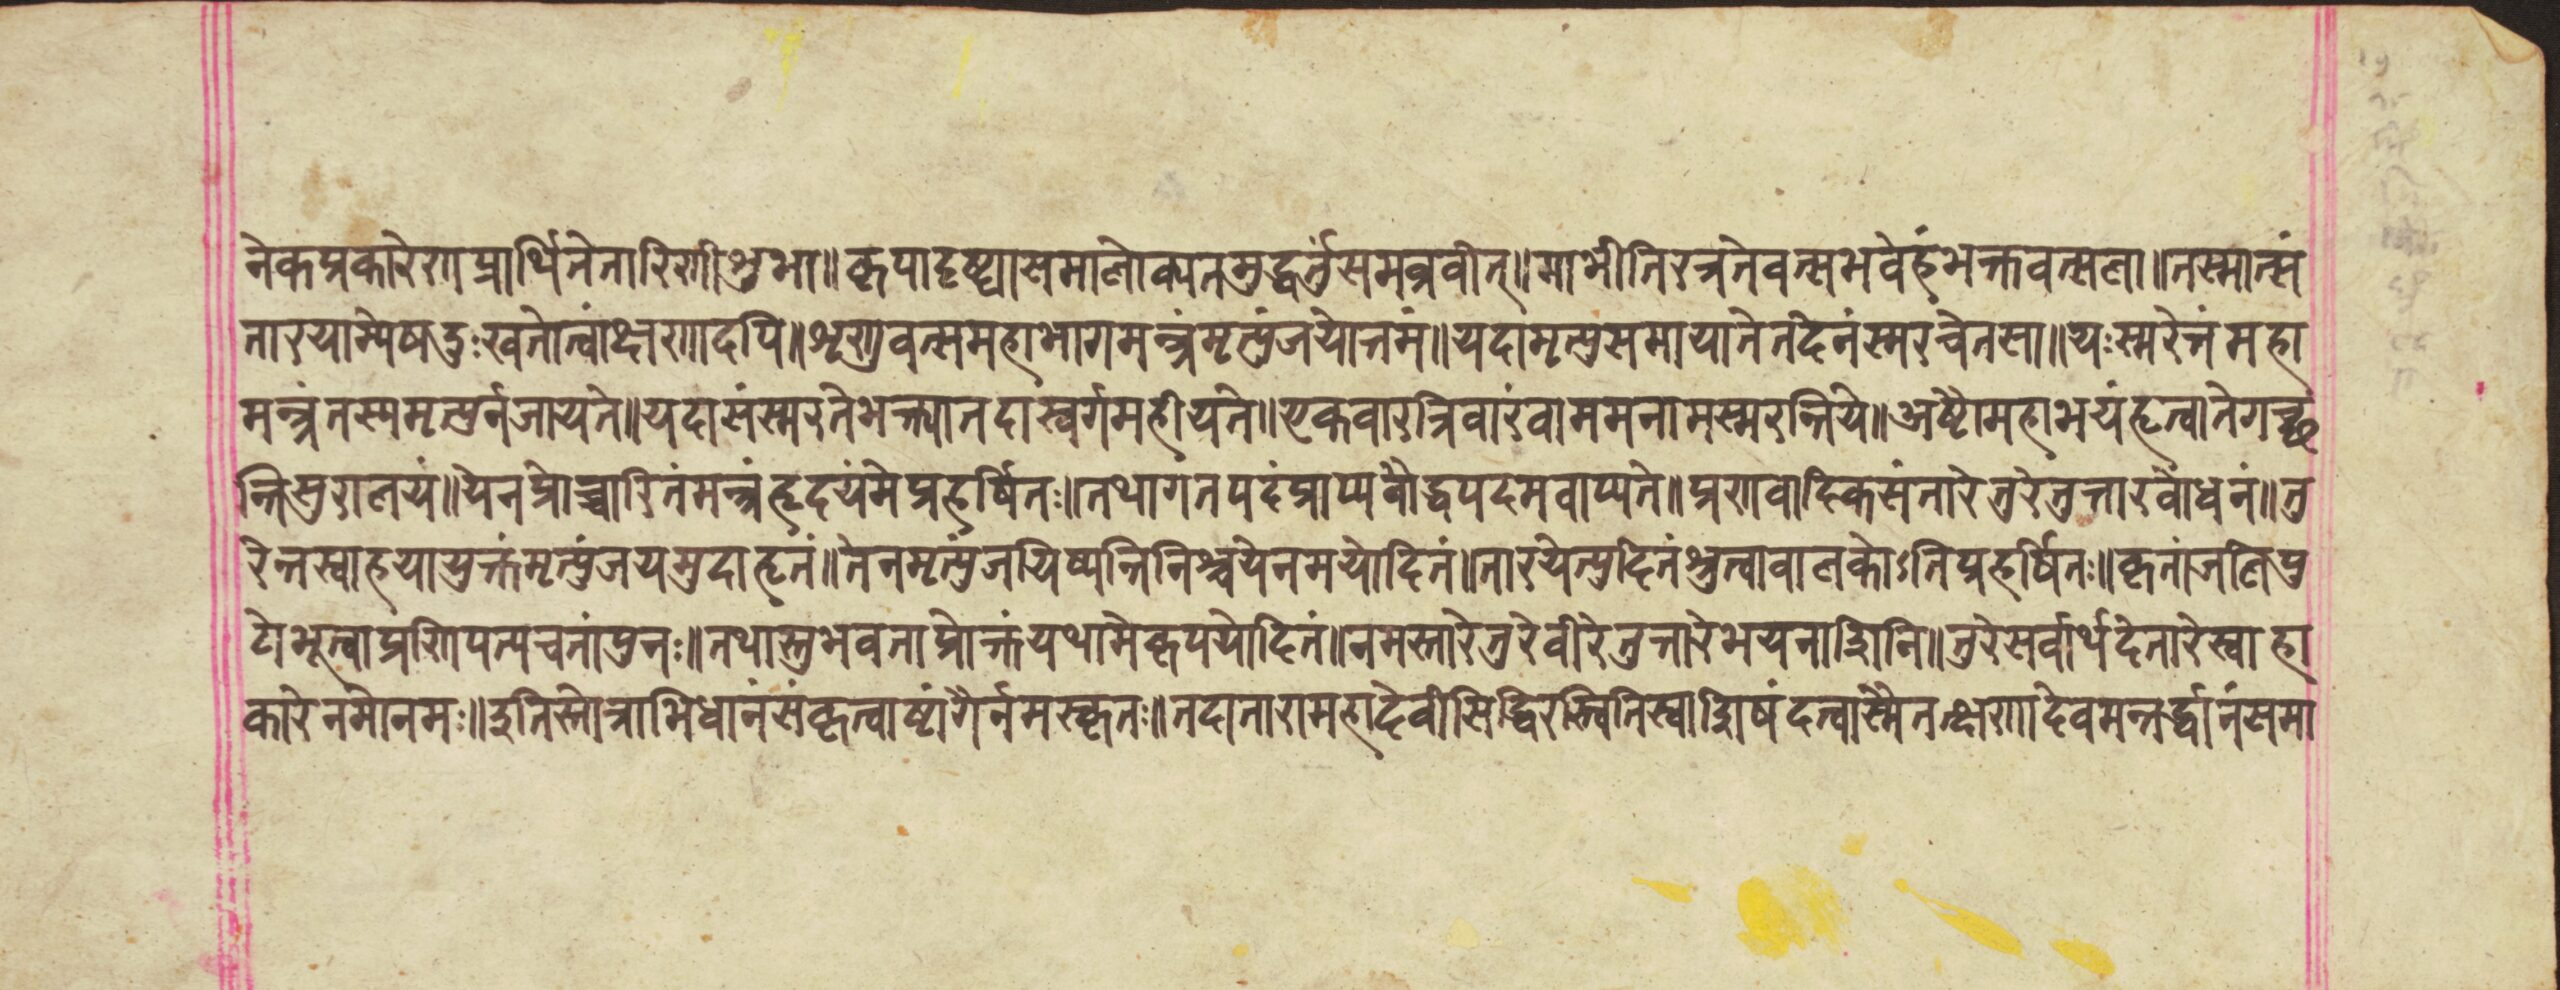 नेकप्रकारेणप्रार्थितेतारिणीशुभा॥कृपादृष्ट्यासमालोक्यतमुद्धर्तुंसमब्रवीत्॥माभीतिरत्रतेवत्सभवेहंभक्तवत्सला॥तस्मात्सं
तारयाम्येषदुःखतोत्वांक्षणादपि॥शृणुवत्समहाभागमन्त्रंमृत्युंजयोत्तमं॥यदामृत्युसमायातेतदेनंस्मरचेतसा॥यःस्मरेत्तंमहा
मन्त्रंतस्यमृत्युर्नजायते॥यदासंस्मरतेभक्त्यातदास्वर्गमहीयते॥एकवारत्रिवारंवाममनामस्मरन्तिये॥अष्टौमहाभयंहृत्वातेगच्छ
न्तिसुरालयं॥येनप्रोच्चारितंमन्त्रंहृदयंमेप्रहर्षितः॥तथागतपदंप्राप्यबौद्धपदमवाप्यते॥प्रणवादिकसंतारेतुरेतुत्तारवोधनं॥तु
रेन्तस्वाहयायुक्तंमृत्युंजयमुदाहृतं॥तेनमृत्युंजयिष्यन्तिनिश्चयेनमयोदितं॥तारयेत्युदितंश्रुत्वावालकोऽतिप्रहर्षितः॥कृतांजलिपु
टोभूत्वाप्रणिपत्यचतांपुनः॥तथास्तुभवताप्रोक्तंयथामेकृपयोदितं॥नमस्तारेतुरेवीरेतुत्तारेभयनाशिनि॥तुरेसर्वार्थदेतारेस्वाहा
कारेनमोनमः॥इतिस्तोत्राभिधानंसंकृत्वाष्टांगैर्नमस्कृतः॥तदातारामहादेवीसिद्धिरस्त्वितिस्वाशिषंदत्वास्मैतत्क्षणादेवमन्तर्द्धानंसमा